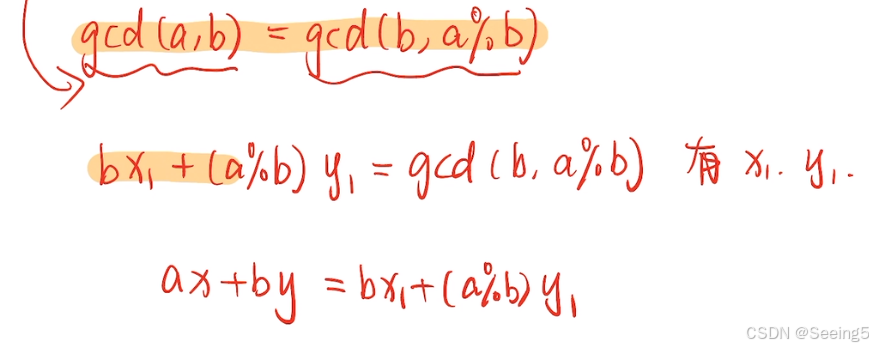 gcd(a,b) = gcd(b, a%b)
bx₁ + (a%b) y₁ = gcd(b, a%b) 有 x₁. y₁.
ax+by = bx₁+(a%b) y₁
CSDN @Seeing5